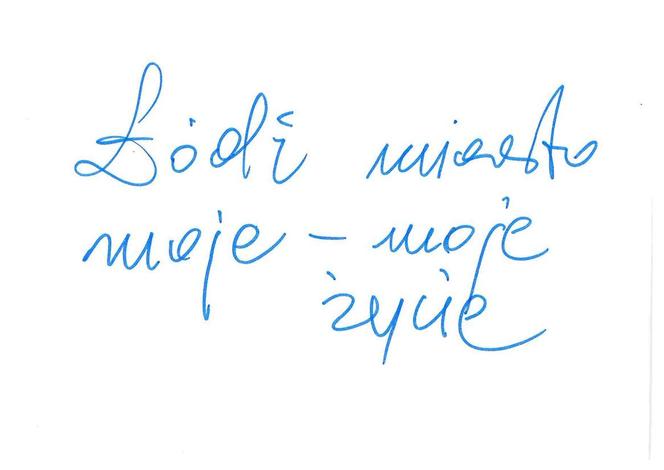 Łódź miasto
moje – moje
życie